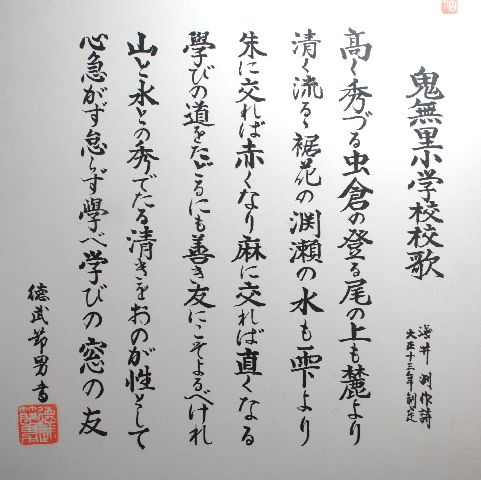 鬼無里小学校校歌
浅井洌作詩
大正十三年制定
高く秀づる虫倉の登る尾の上も麓より
清く流るゝ裾花の渕瀬の水も一雫より
朱に交れば赤くなり麻に交れば直くなる
學びの道をたどるにも善き友にこそよるべけれ
山と水との秀でたる清きをおのが性として
心急がず怠らず學べ学びの窓の友
徳武節男書